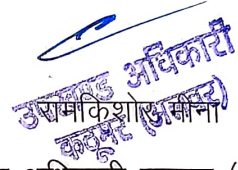 उपखण्ड अधिकारी
रामकिशोर मीना
कठूमर (अलवर)
अधिकारी